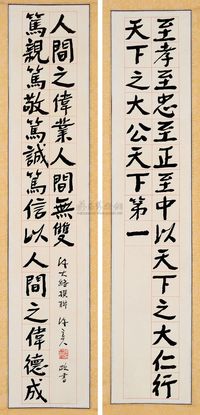 至孝至忠至正至中以天下之大仁行
天下之大公天下第一
篤親篤敬篤誠篤信以人間之偉德成
人間之偉業人間無雙